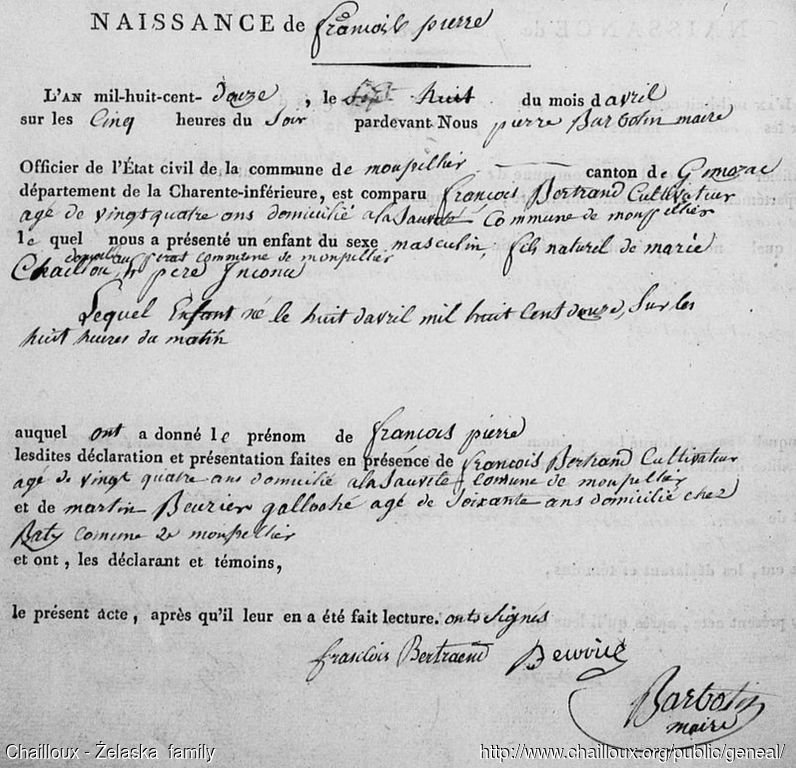 NAISSANCE de françois pierre
L'AN mil-huit-cent- douze , le huit du mois d avril
sur les Cinq heures du Soir pardevant Nous pierre Barbotin maire
Officier de l'État civil de la commune de monpellier canton de Gemozac
département de la Charente-inférieure, est comparu françois Bertrand Cultivatier
agé de vingt quatre ans domicilié a la Sauvete Commune de monpellier
le quel nous a présenté un enfant du sexe masculin, fils naturel de marie
commune de monpellier
Chaillou, père Inconu
Lequel Enfant né le huit davril mil huit Cent douze, Sur les
huit heures du matin
auquel ont a donné le prénom de françois pierre
lesdites déclaration et présentation faites en présence de françois Bertrand Cultivatier
agé de vingt quatre ans domicilié a la Sauvete Comune de monpellier
et de martin Beurier agé de Soixante ans domicilié chez
Baty Comune de monpellier
et ont , les déclarant et témoins,
le présent acte, après qu'il leur en a été fait lecture. onts Signés
françois Bertraend
Barbotin
maire
Chailloux - Żelaska family http://www.chailloux.org/public/geneal/